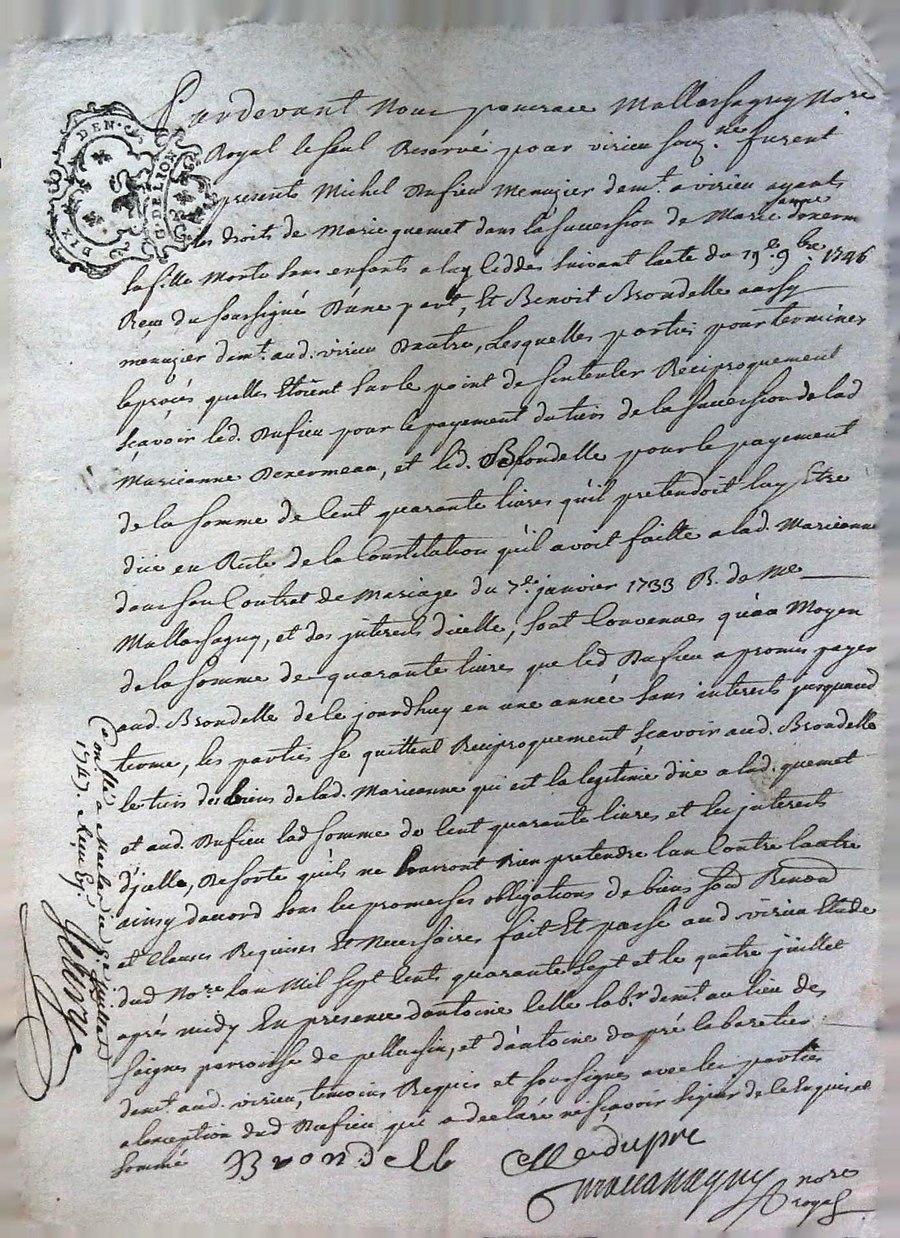 Pardevant Nous pancrace Mallassagny No.re
Royal le seul Reservé pour virieu souz.né furent
presents Michel Dufieu Menuzier dem.t a virieu ayants
les droits de Marie quemet dans la succession de Marieanne donerm
sa fille Morte sans enfants a luy ceddes suivant lacte du 19.e 9.bre 1746
Reçu du soussigné D'une part, Et Benoit Brondelle aussy
menuzier dem.t aud. virieu Dautre, Lesquelles parties pour terminer
le procés quelles Etoient sur le point de sintenter Reciproquement
sçavoir led. Dufieu pour le payement du tiers de la succession de lad
Marieanne Denermeau, et led. Brondelle pour le payement
de la somme de Cent quarante livres qu'il pretendoit luy Etre
düe en Reste de la Constitution qu'il avoit faitte a lad. Marieanne
dans son Contrat de Mariage du 7.e janvier 1733 R. de Me
Mallassagny, et des jnterests dicelle, sont Convenues qu'au Moyen
de la somme de quarante livres que led Dufieu a promis payer
aud. Brondelle de ce jourdhuy en une année sans interests jusquaud
terme, les parties se quittent Reciproquement sçavoir aud. Brondelle
le tiers des biens de lad. Marieanne qui est la legitime düe a lad. quemet
et aud. Dufieu lad somme de Cent quarante livres et les jnterests
d'jcelle, De sorte qu'ils ne pourront Rien pretendre lun Contre lautre
ainsy daccord sous les promesses obligations de biens
et Clauses Requises Et Necessaires fait Et passé aud virieu Etude
dud No.re lan Mil sept Cents quarante sept et le quatre juillet
aprés midy En présence dantoine Celle lab.r dem.t au lieu des
saignes parroisse de pellussin, et d'antoine dupré Cabaretier
dem.t aud. virieu, temoins Requis et soussignes avec les parties
a lexception dud Dufieu qui a declaré ne sçavoir signer de ce Enquis et
sommé Brondelle Celle dupre
mallassagny no.re
royal
DEN.
DIX
G. DE LION
Controllé a Maclas le 5e juillet
1747. Reçu